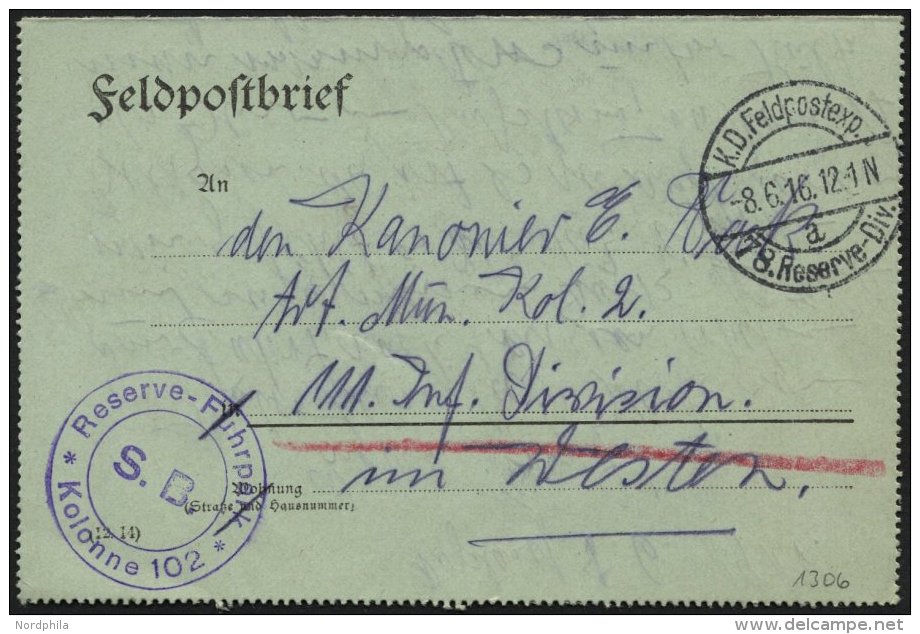 Feldpostbrief
K.D. Feldpostexp.
-8.6.16. 12-1 N
a
78. Reserve-Div.
An
den Kanonier E.
Art. Mun. Kol. 2.
111. Inf. Division.
in
im Westen.
Wohnung
(Straße und Hausnummer)
Reserve-Fuhrpark
S. B.
* Kolonne 102 *
(12. 14)
1306
Nordphila
delcampe.net